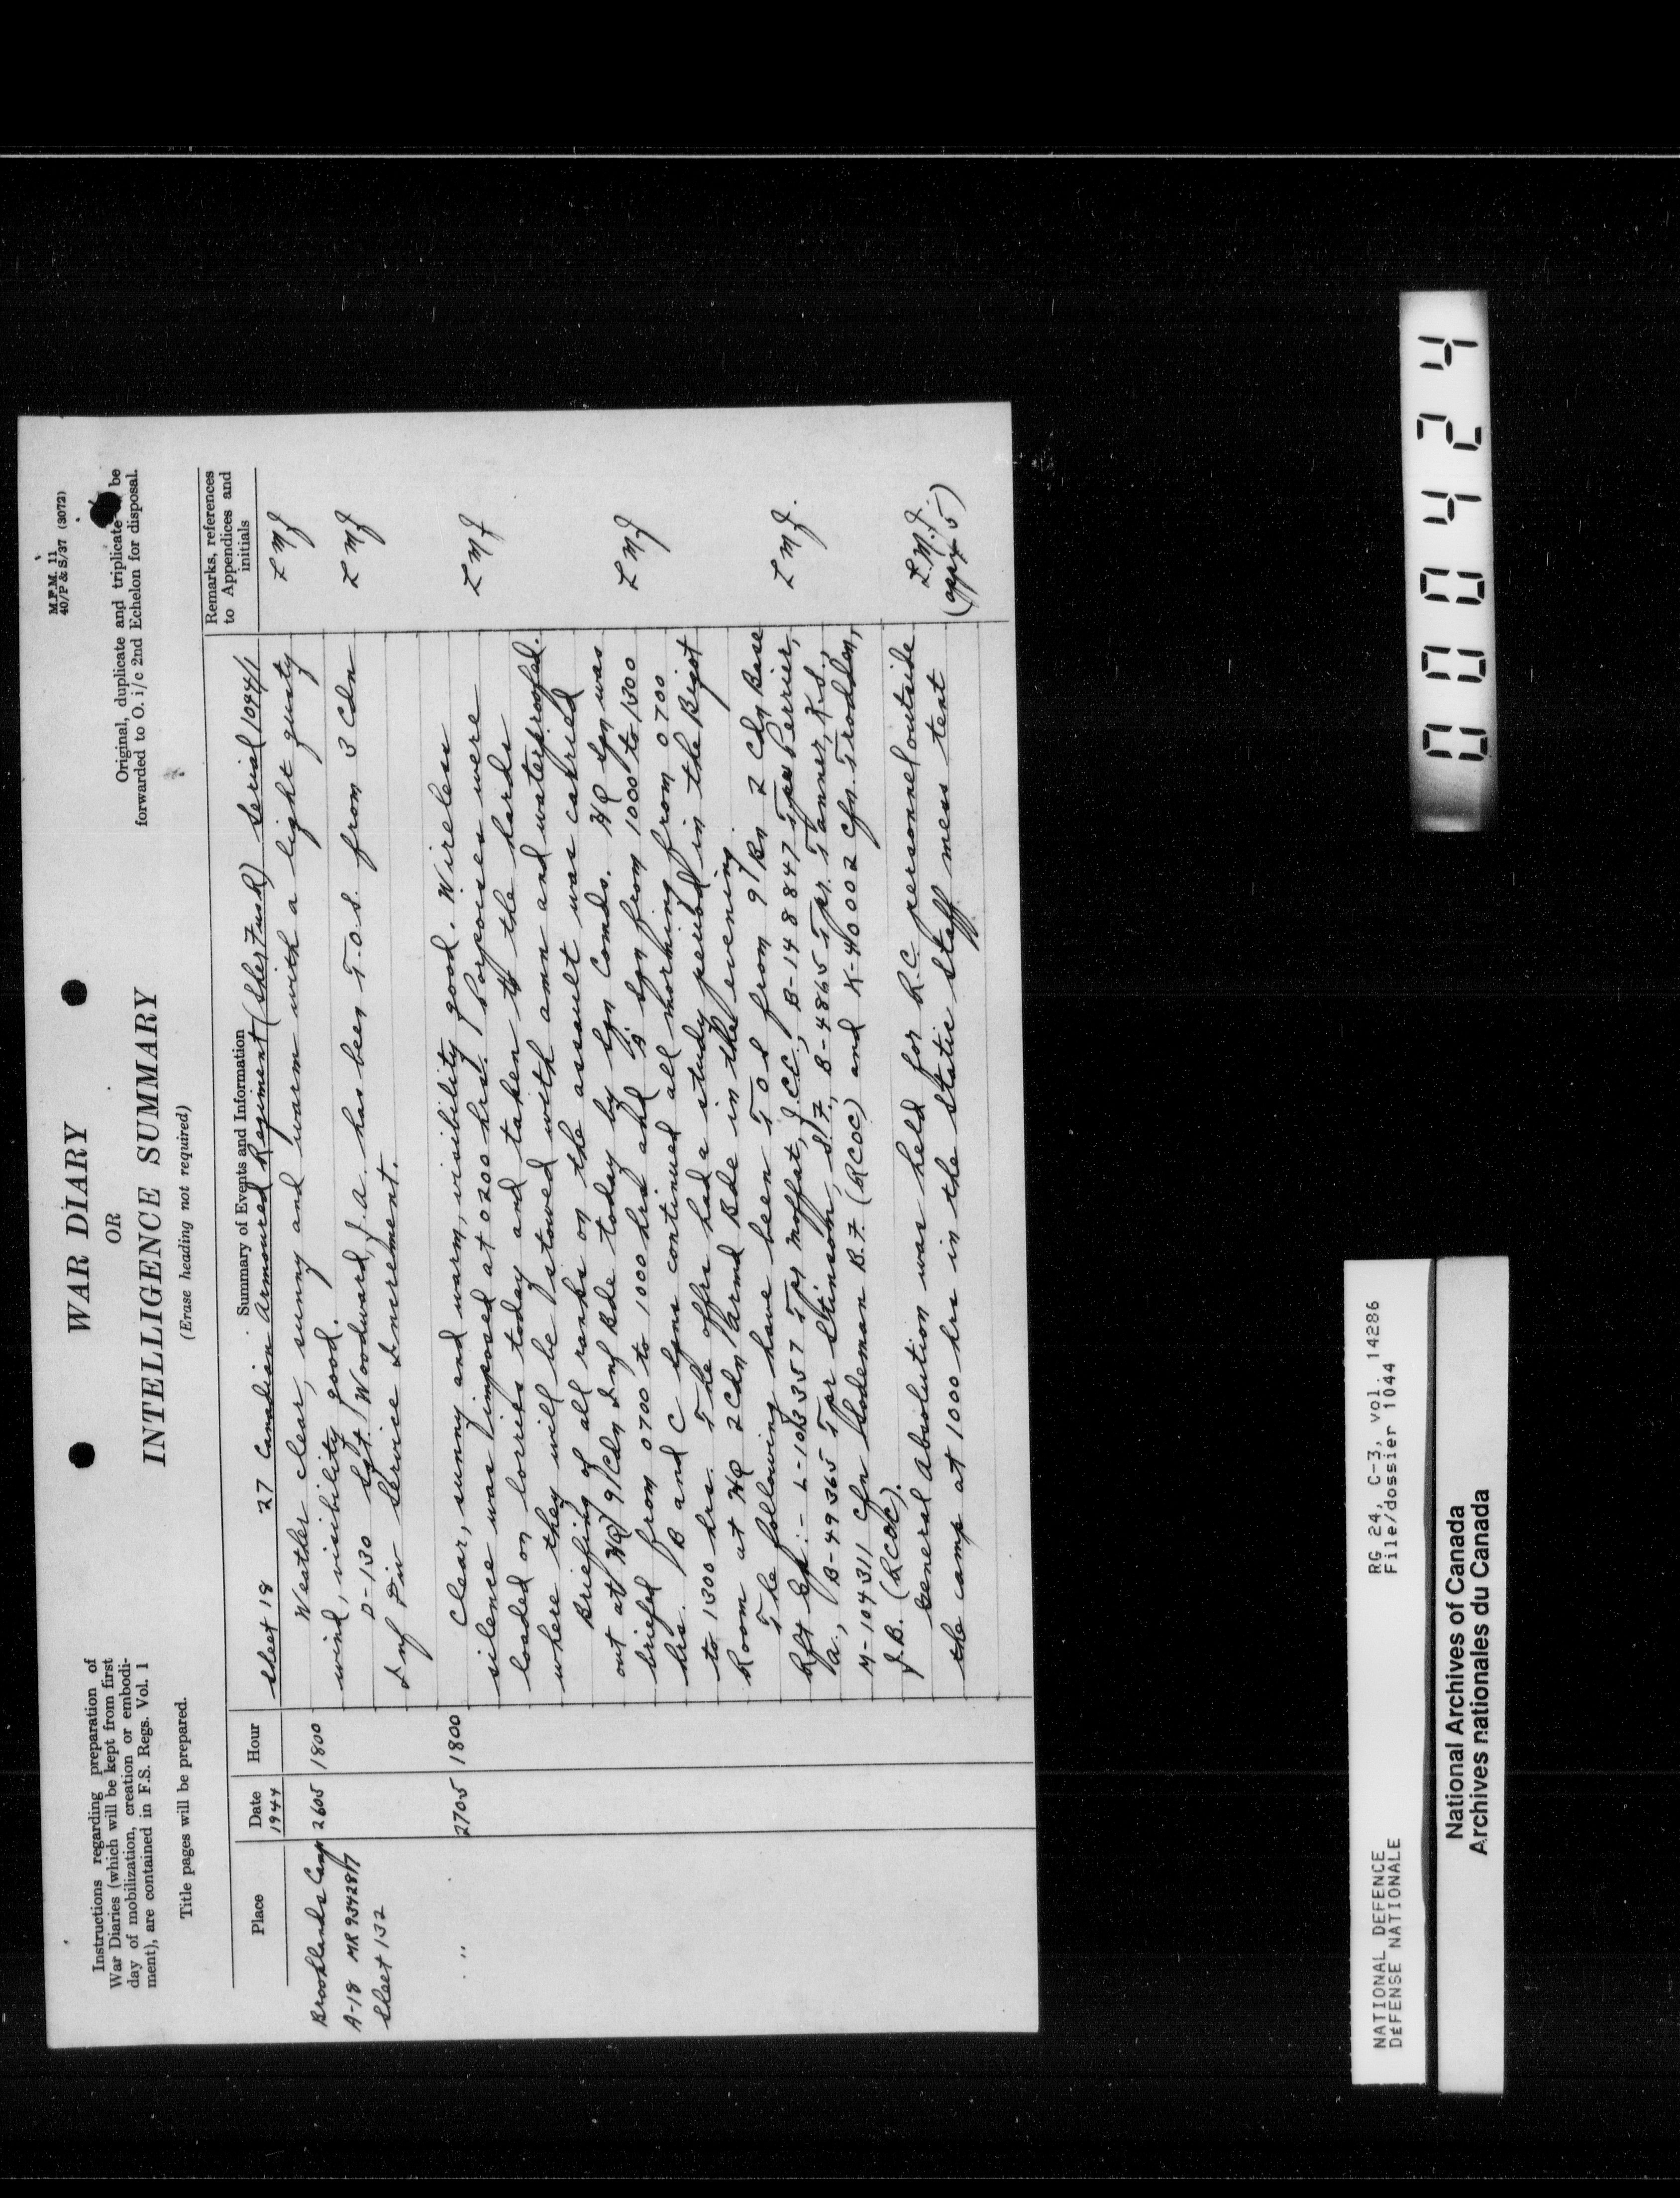 M.F.M. 11
40/P & S/37 (3072)
WAR DIARY
OR
INTELLIGENCE SUMMARY
(Erase heading not required)
Instructions regarding preparation of
War Diaries (which will be kept from first
day of mobilization, creation or embodi-
ment), are contained in F.S. Regs. Vol. 1
Title pages will be prepared.
Original, duplicate and triplicate be
forwarded to O. i/c 2nd Echelon for disposal.
Place
Date
1944
Hour
Summary of Events and Information
Remarks, references
to Appendices and
initials
Sheet 18 27 Canadian Armoured Regiment (Sher Fus R) Serial 1094/1
Brooklands Camp 2605 1800 Weather clear, sunny and warm with a light gusty LMJ
A-18 MR 934289 wind, visibility good.
Sheet 132 D-130 Sgt. Woodward, J.A. has been T.O.S. from 3 Cdn LMJ
Inf Div Service Increment.
" 2705 1800 Clear, sunny and warm, visibility good. Wireless
silence was imposed at 0200 hrs. Porpoises were LMJ
loaded on lorries today and taken to the hards
where they will be stowed with amn and waterproofed.
Briefing of all ranks on the assault was carried
out at HQ 9 Cdn Inf Bde today by Sqn Comds. HQ Sqn was
briefed from 0700 to 1000 hrs and A Sqn from 1000 to 1300 LMJ
hrs. B and C Sqns continued all working from 0700
to 1300 hrs. The offrs had a study period in the Bigot
Room at HQ 2 Cdn Armd Bde in the evening.
The following have been TOS from 9 Bn 2 Cdn Base
Rft Gp:- L-103357 Tpr Moffat, J.C.C., B-148847 Tpr Perrier, LMJ.
A., B-49365 Tpr Stinson, S.F., B-4865 Tpr. Tanner, K.S.,
M-104311 Cfn Stodeman B.F. (RCOC) and K-40002 Cfn. Frodden,
J.B. (RCOC).
General Absolution was held for R.C. personnel outside L.M.J.
the camp at 1000 hrs in the static staff mess tent (appx 5)
000424
NATIONAL DEFENCE
DÉFENSE NATIONALE
RG 24, C-3, vol. 14286
File/dossier 1044
National Archives of Canada
Archives nationales du Canada